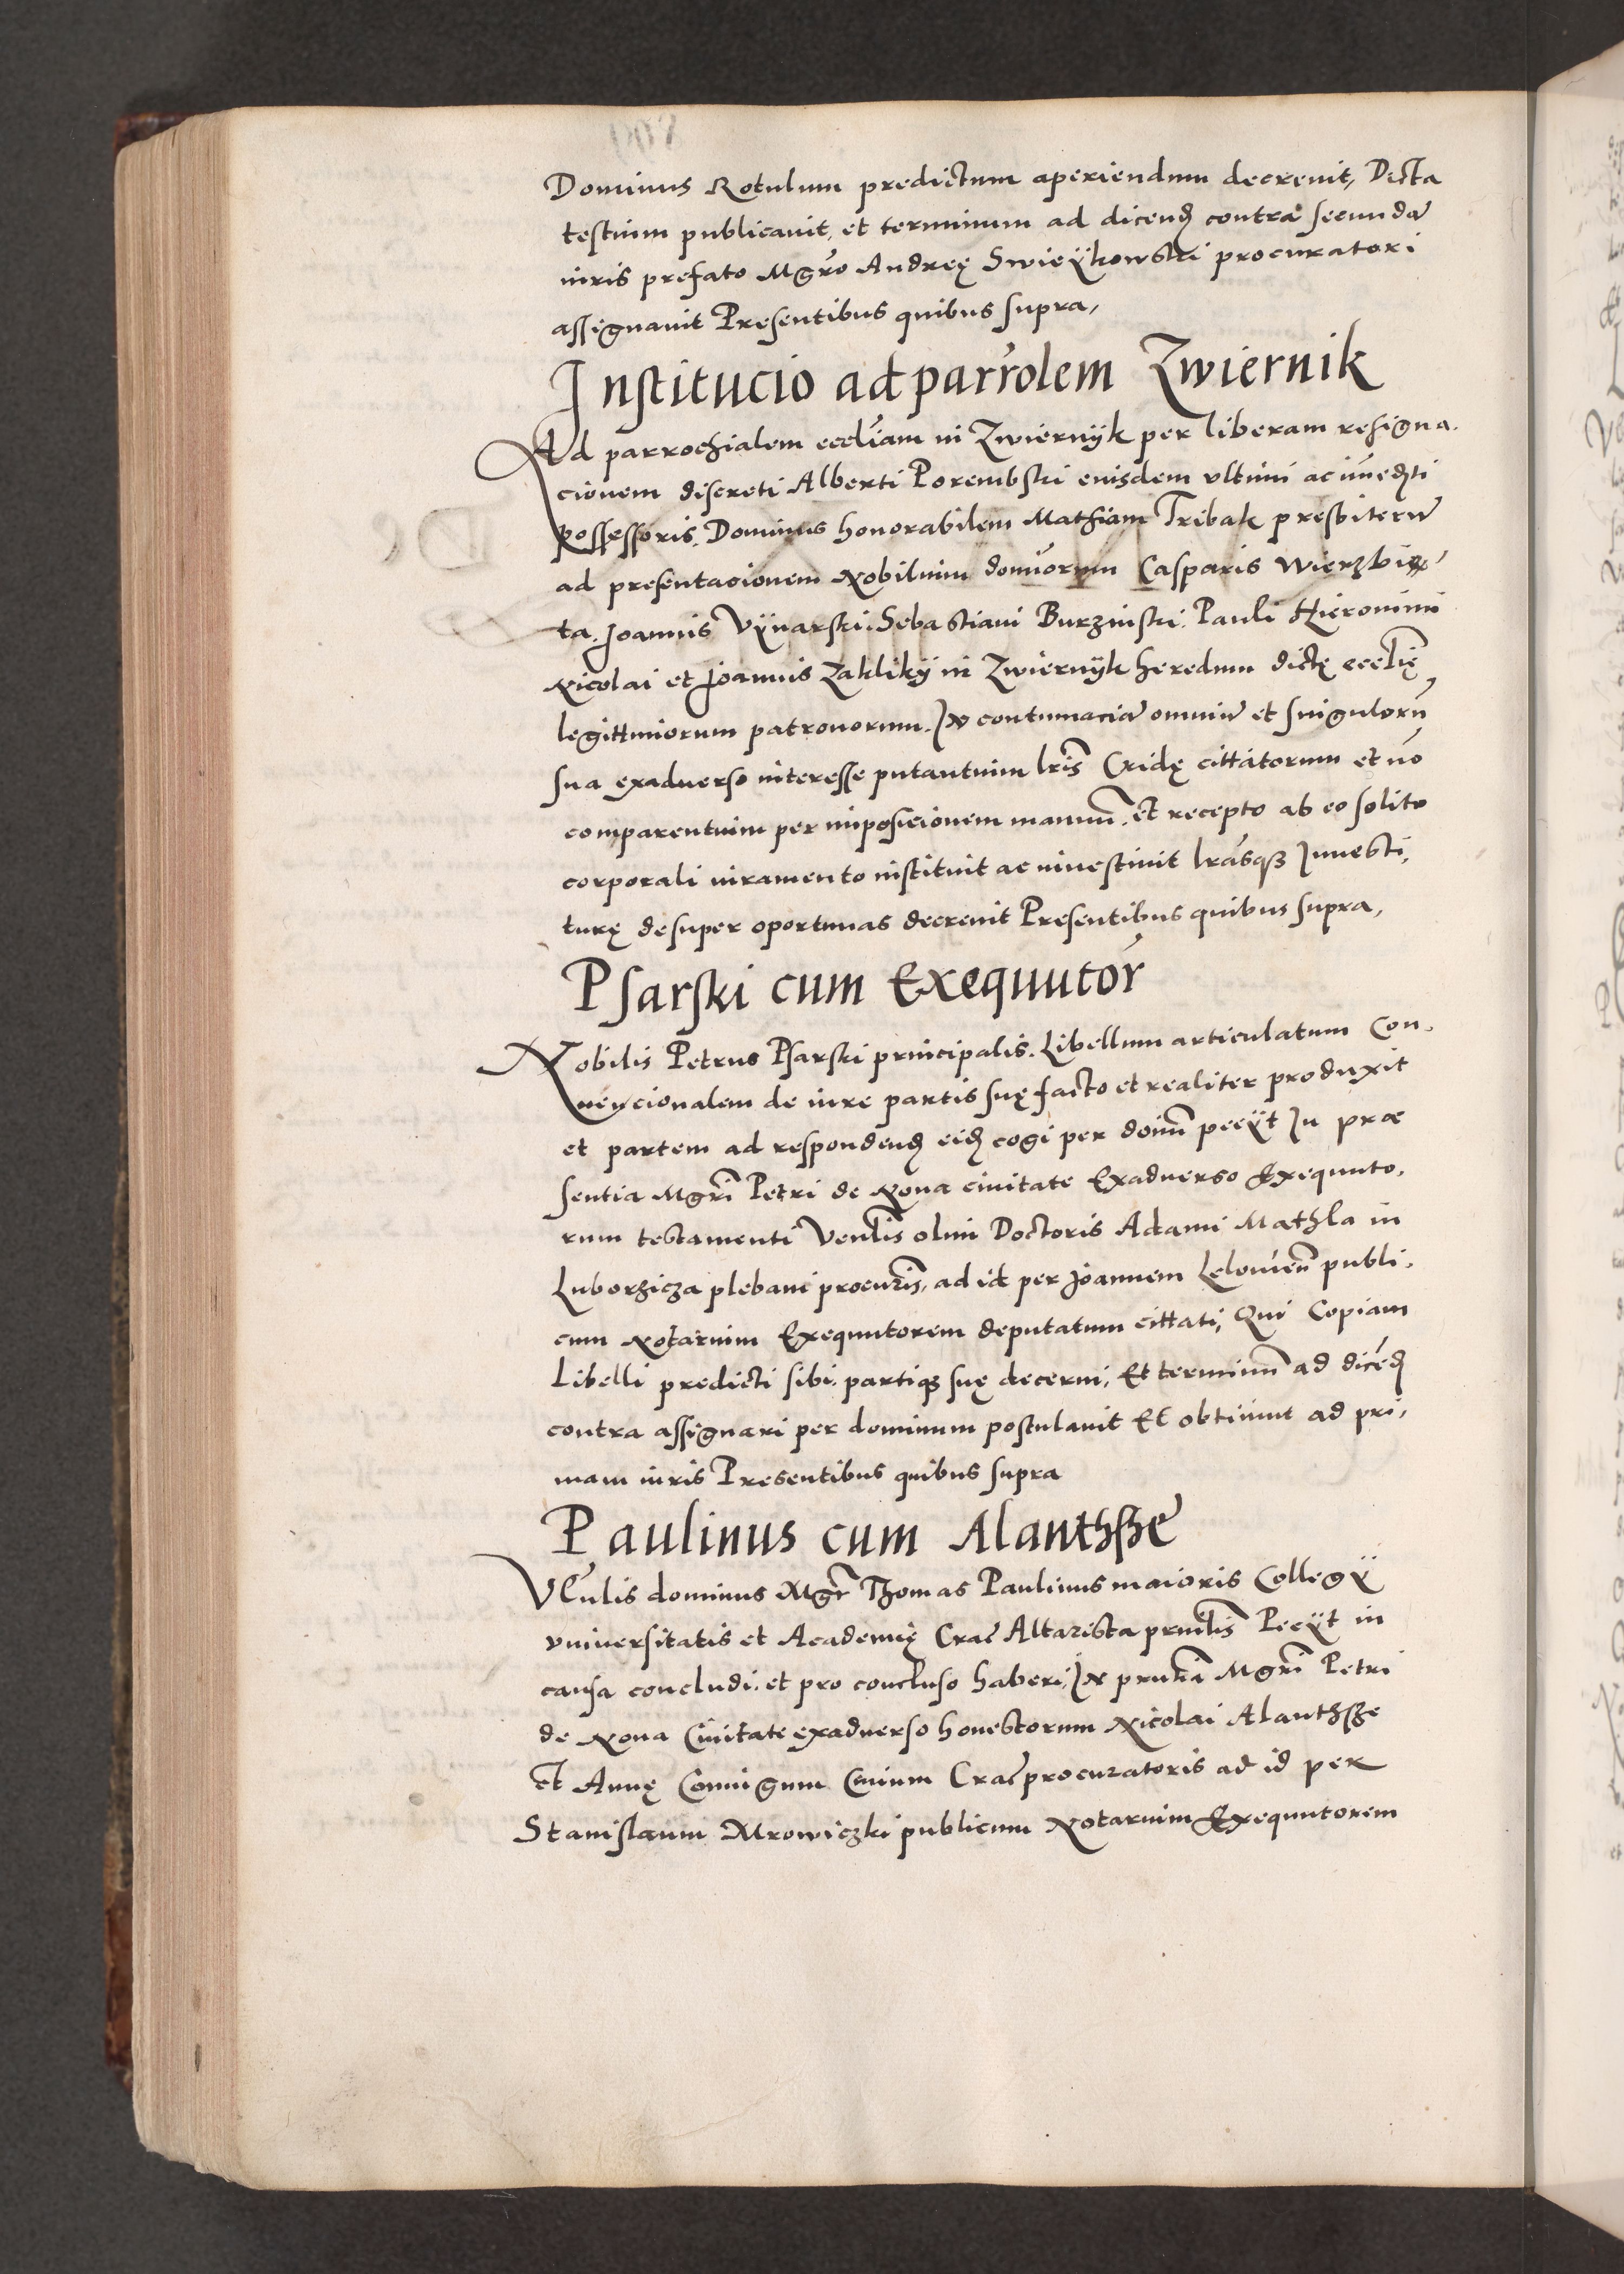 Dominus Rotulum predictum aperiendum decrevit, Dicta
testium publicavit, et terminum ad dicend contra secundā
iuris prefato Mgro Andreę Swieÿkowski procuratori
assignavit Presentibus quibus supra,
Institucio ad parrolem Zwiernik
Ad parrochialem eccliam in Zwiernÿk per liberam resigna.
cionem discreti Alberti Porembski eiusdem ultimi ac immedti
possessoris. Dominus honorabilem Mathiam Tribak presbiterū
ad presentacionem Nobilium domiorum Casparis Wierzbi
ta. Joannis Vÿnarski. Sebastiani Burzinski. Pauli Hieronimi
Nicolai et Joannis Zaklikÿ in Zwiernÿk heredum dictę ecclię
legittimorum patronorum. In contumaciā omniū et singulorū
sua exadverso interesse putantium lris Cridę cittatorum et nō
comparentium per imposicionem manuū. et recepto ab eo solito
corporali iuramento instituit ac investivit lrasqz Investi,
turę desuper oportunas decrevit Presentibus quibus supra,
Psarski cum Exequutor
Nobilis Petrus Psarski principalis. Libellum articulatum Con,
vencionalem de iure partis suę facto et realiter produxit
et partem ad respondend eid cogi per domū peciÿt In præ
sentia Mgri Petri de Nova civitate Exadverso Exequuto,
rum testamenti Venlis olim Doctoris Adami Mathla in
Luborzicza plebani procuris, ad id per Joannem Lelovien publi.
cum Notarium Exequutorem deputatum cittati, Qui Copiam
Libelli predicti sibi. partiqz suę decerni, Et terminū ad dicēd
contra assignari per dominum postulavit Et obtinuit ad pri,
mam iuris Presentibus quibus supra
Paulinus cum Alanthsze
Vēnlis dominus Mgr Thomas Paulinus maioris Collegÿ
universitatis et Academię Crac Altarista prinlis Peciÿt in
causa concludi. et pro concluso haberi, In prntia Mgri Petri
de Nova Civitate exadverso honestorum Nicolai Alanthsze
et Annę Coniugum Civium Crac procuratoris ad id per
Stanislaum Mrowiczki publicum Notarium Exequutorem